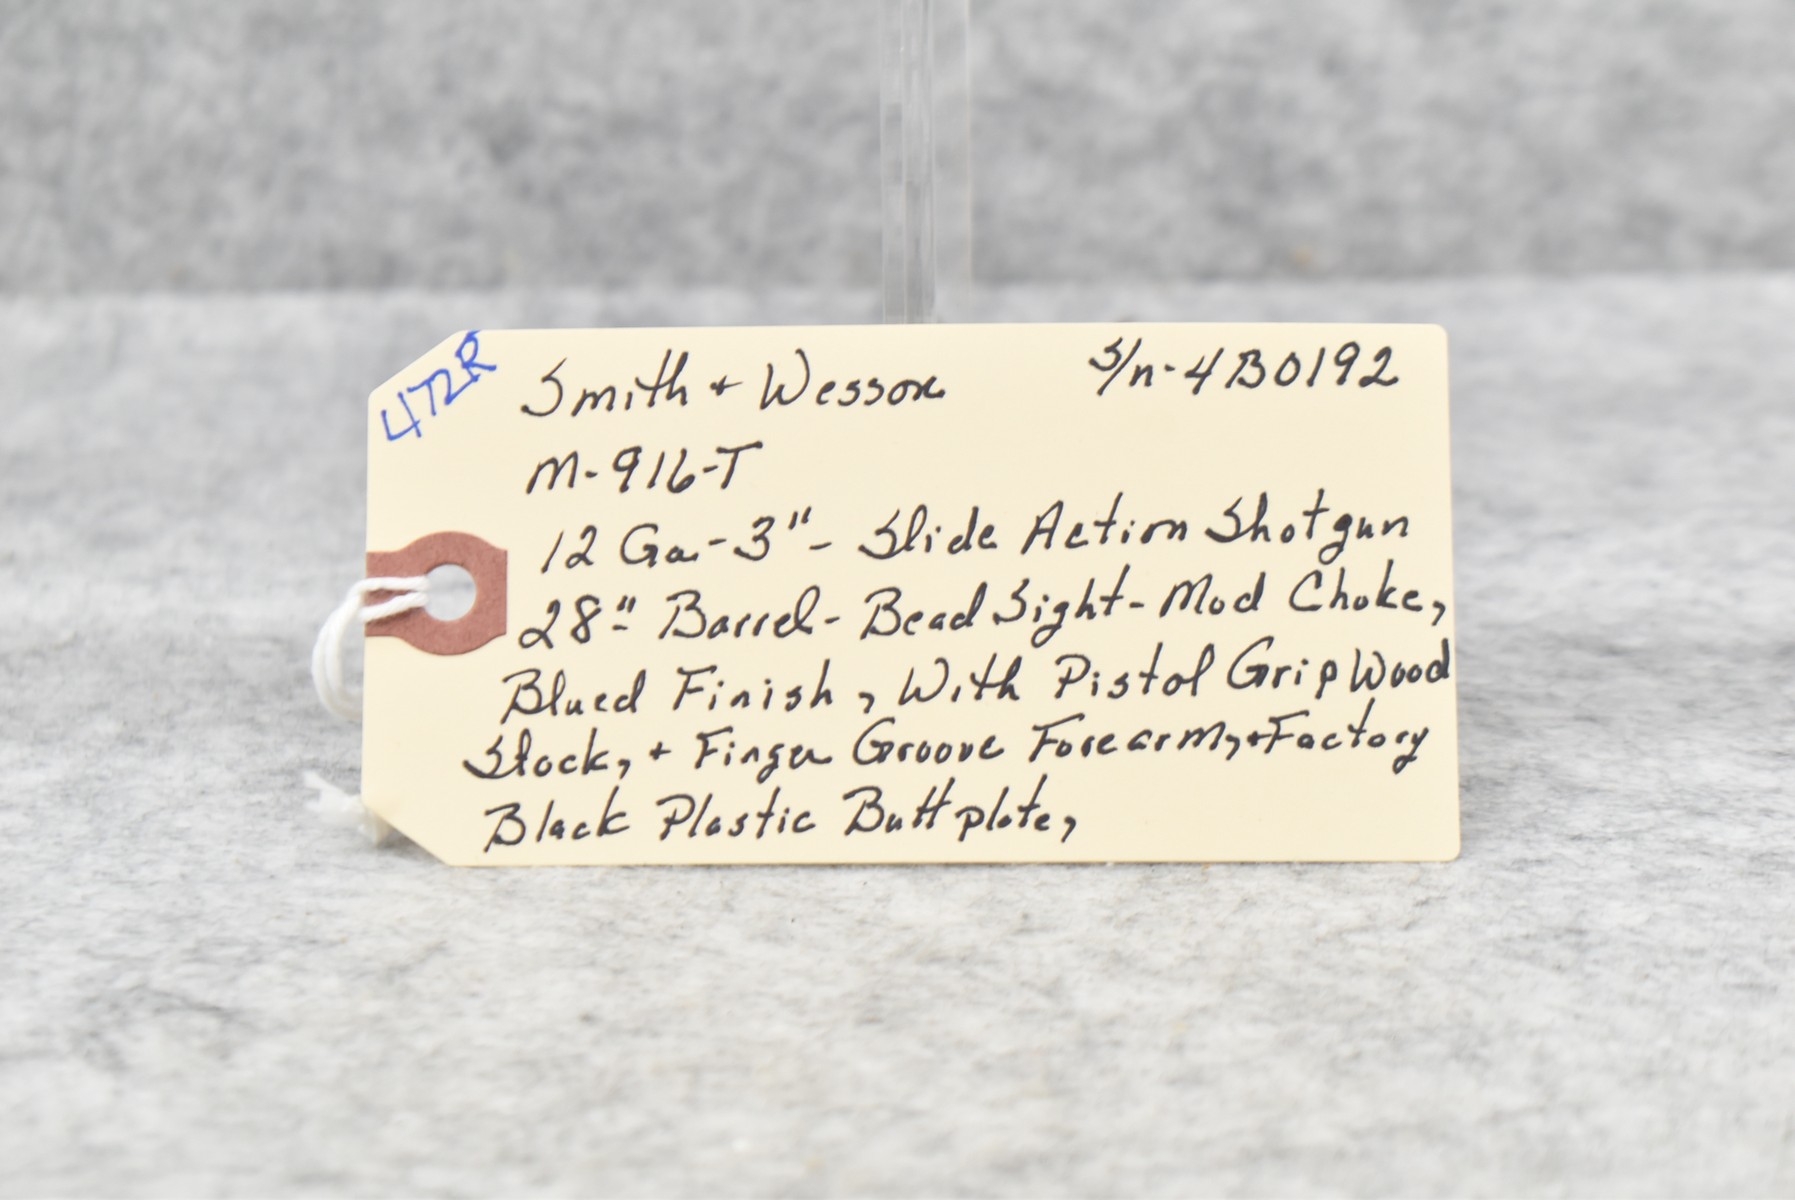 472R
Smith + Wesson S/n-4B0192
M-916-T
12 Ga-3"- Slide Action Shotgun
28"- Barrel- Bead Sight- Mod Choke,
Blued Finish, With Pistol Grip Wood
Stock, + Finger Groove Forearm, + Factory
Black Plastic Buttplate,